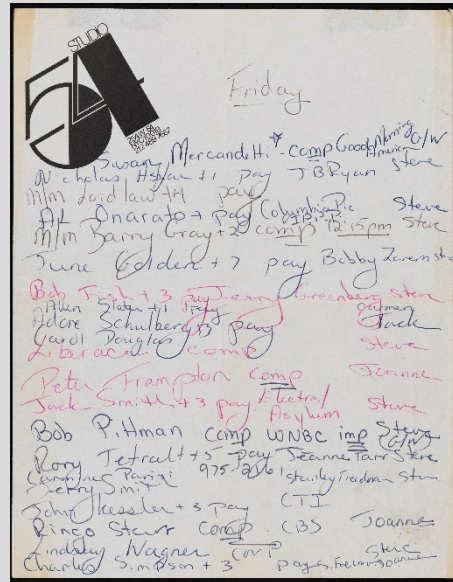 STUDIO
54
Friday
Susan Mercandetti - comp Good Morning America G/W
Nicholas +1 pay JB Ryan Steve
M/M Laidlaw +4 pay
AL Onarato + pay Columbia Pic. Steve
M/M Barry Gray +2 comp 12:15pm Steve
June Golden + 7 pay Bobby Zarem Steve
Bob Fish + 3 pay Jerry Greenberg Steve
Allen +1 pay Carmen
Adore Schulberg +3 pay Jack
Carol Douglas
Liberace comp Steve
Peter Frampton comp Joanne
Jack Smith + 3 pay Electra/ Steve
Asylum
Bob Pittman comp WNBC imp Steve G/W
Rory Tetralt + 5 pay Jeanne Tarr Steve
Carmine Parigi 975- Stanley Friedman Steve
Jerry Smith
John Kessler + 3 pay CTI
Ringo Starr comp CBS Joanne
Lindsay Wagner comp Steve
Charles Simpson + 3 pay